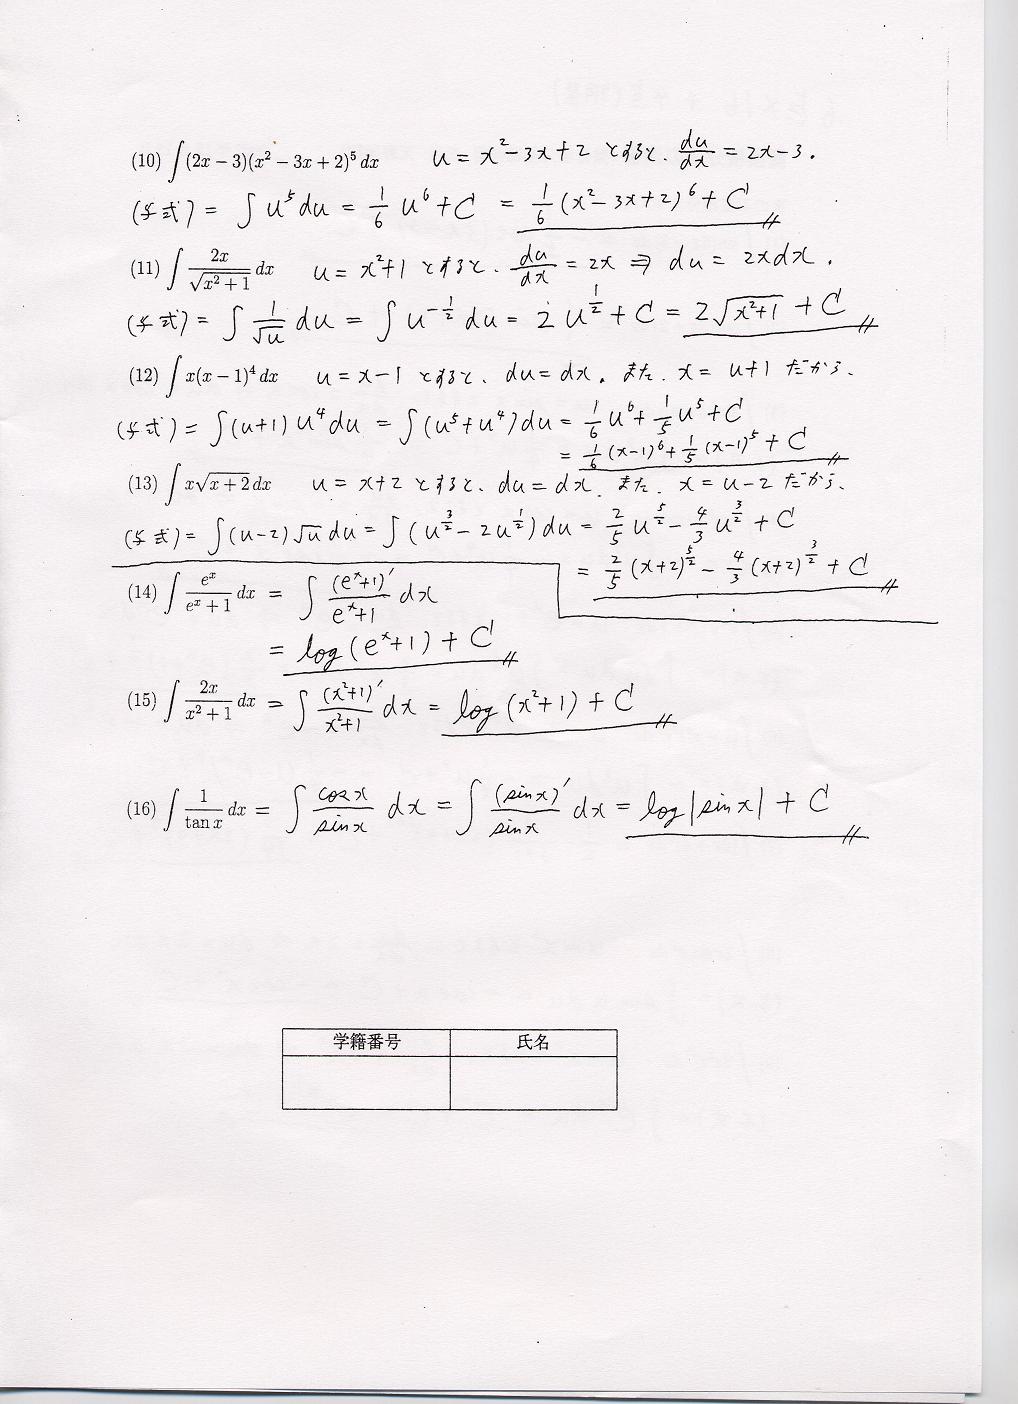 (10) ∫(2x − 3)(x² − 3x + 2)⁵ dx　u = x² − 3x + 2 とすると、du/dx = 2x − 3.
(与式) = ∫ u⁵ du = 1/6 u⁶ + C = 1/6 (x² − 3x + 2)⁶ + C
(11) ∫ 2x/√(x² + 1) dx　u = x² + 1 とすると、du/dx = 2x ⇒ du = 2x dx.
(与式) = ∫ 1/√u du = ∫ u^(−1/2) du = 2u^(1/2) + C = 2√(x² + 1) + C
(12) ∫ x(x − 1)⁴ dx　u = x − 1 とすると、du = dx. また、x = u + 1 だから、
(与式) = ∫(u + 1)u⁴ du = ∫(u⁵ + u⁴)du = 1/6 u⁶ + 1/5 u⁵ + C
= 1/6 (x − 1)⁶ + 1/5 (x − 1)⁵ + C
(13) ∫ x√(x + 2) dx　u = x + 2 とすると、du = dx. また、x = u − 2 だから、
(与式) = ∫(u − 2)√u du = ∫(u^(3/2) − 2u^(1/2))du = 2/5 u^(5/2) − 4/3 u^(3/2) + C
= 2/5 (x + 2)^(5/2) − 4/3 (x + 2)^(3/2) + C
(14) ∫ eˣ/(eˣ + 1) dx = ∫ (eˣ + 1)′/(eˣ + 1) dx
= log(eˣ + 1) + C
(15) ∫ 2x/(x² + 1) dx = ∫ (x² + 1)′/(x² + 1) dx = log(x² + 1) + C
(16) ∫ 1/tan x dx = ∫ cos x/sin x dx = ∫ (sin x)′/sin x dx = log|sin x| + C
学籍番号　氏名